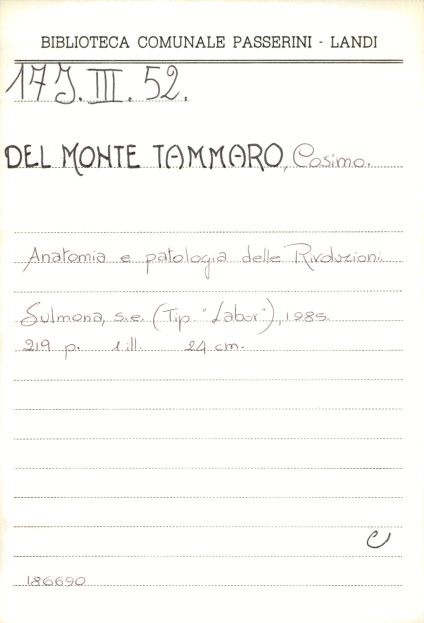 BIBLIOTECA COMUNALE PASSERINI - LANDI
17 J. III. 52.
DEL MONTE TAMMARO, Cosimo.
Anatomia e patologia delle Rivoluzioni.
Sulmona, s.e. (Tip. "Labor"), 1985.
219 p. 1 ill. 24 cm.
C
186690